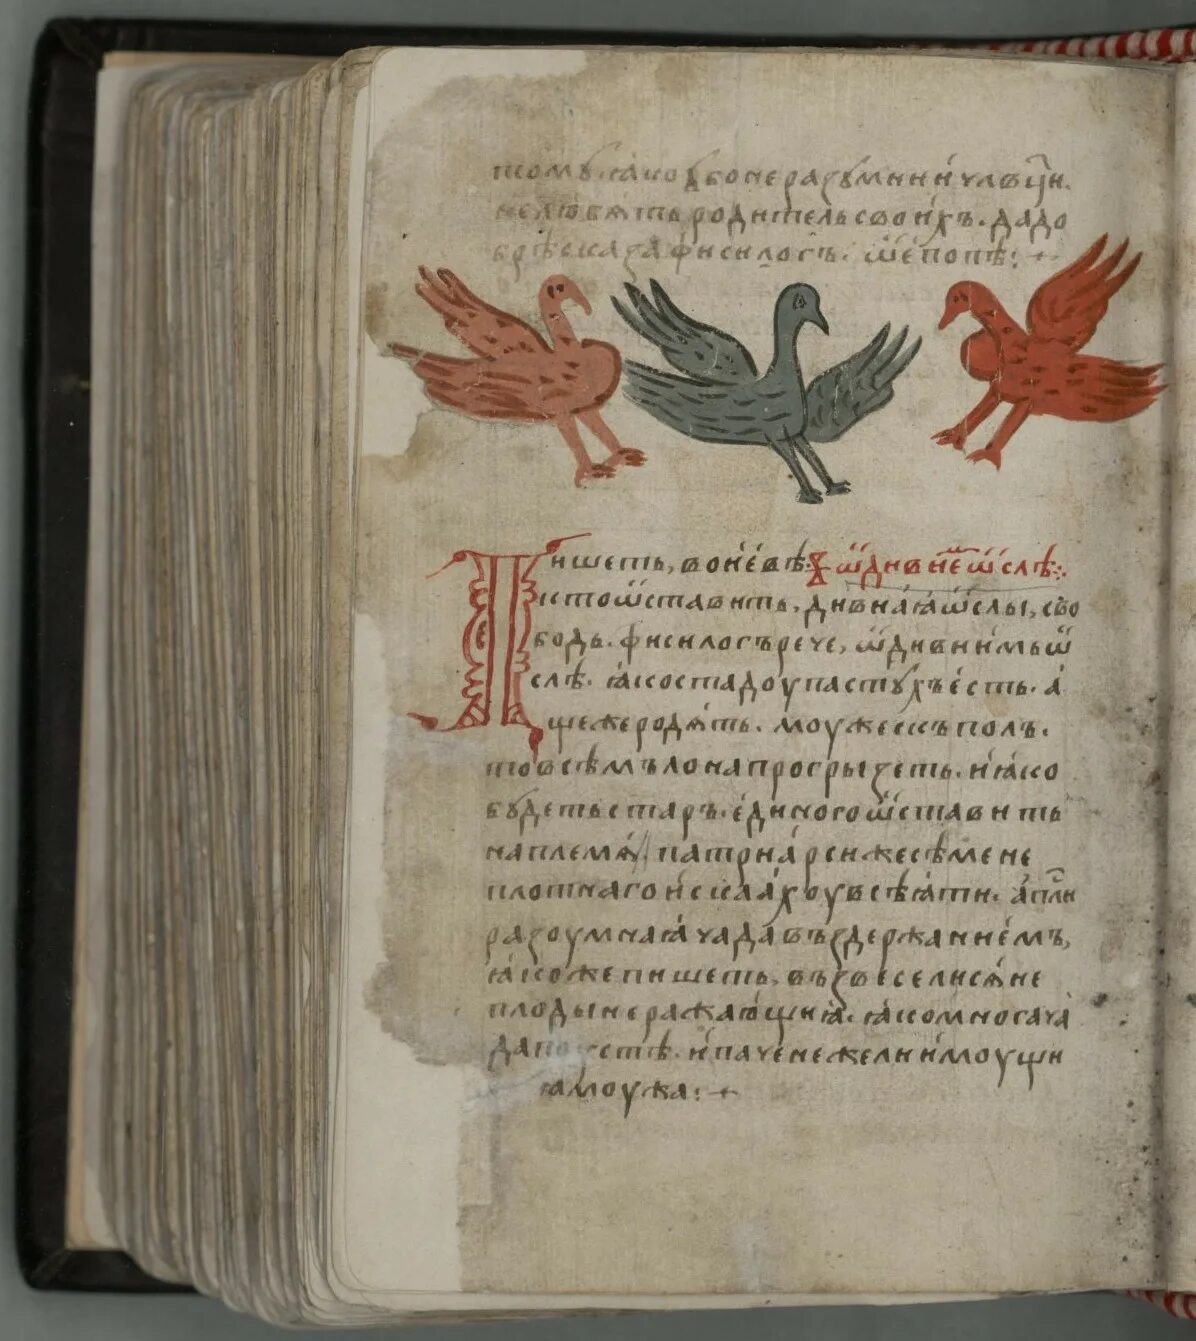 тому. ꙗко ѹбо неразумнии члвци.
не любѧть родитель своихъ. да до
брѣ сказа фисилогъ. ѿ епопѣ :+
Пишеть, во иѡвѣ. ѿ дивнѣмъ ѡслѣ :.
кто ѡставить, дивиꙗ ѡслы, сво
бодь. фисилогъ рече, ѿ дивнимь ѡ
слѣ. ꙗко стадоу пастухъ есть. а
ще же родѧть. моужескъ полъ.
то всѣмъ лона прогрызеть. и ꙗко
будеть старъ. единого ѡставить
на племѧ. патриарси же сѣмене
плотнаго искаахоу всѣꙗти. апли
разоумнаꙗ чада въздержаниемъ,
ꙗкоже пишеть, възвеселисѧ не
плоды не ражающиꙗ. ꙗко многа ча
да поустѣ. и паче нежели имоущи
ꙗ моужа :+